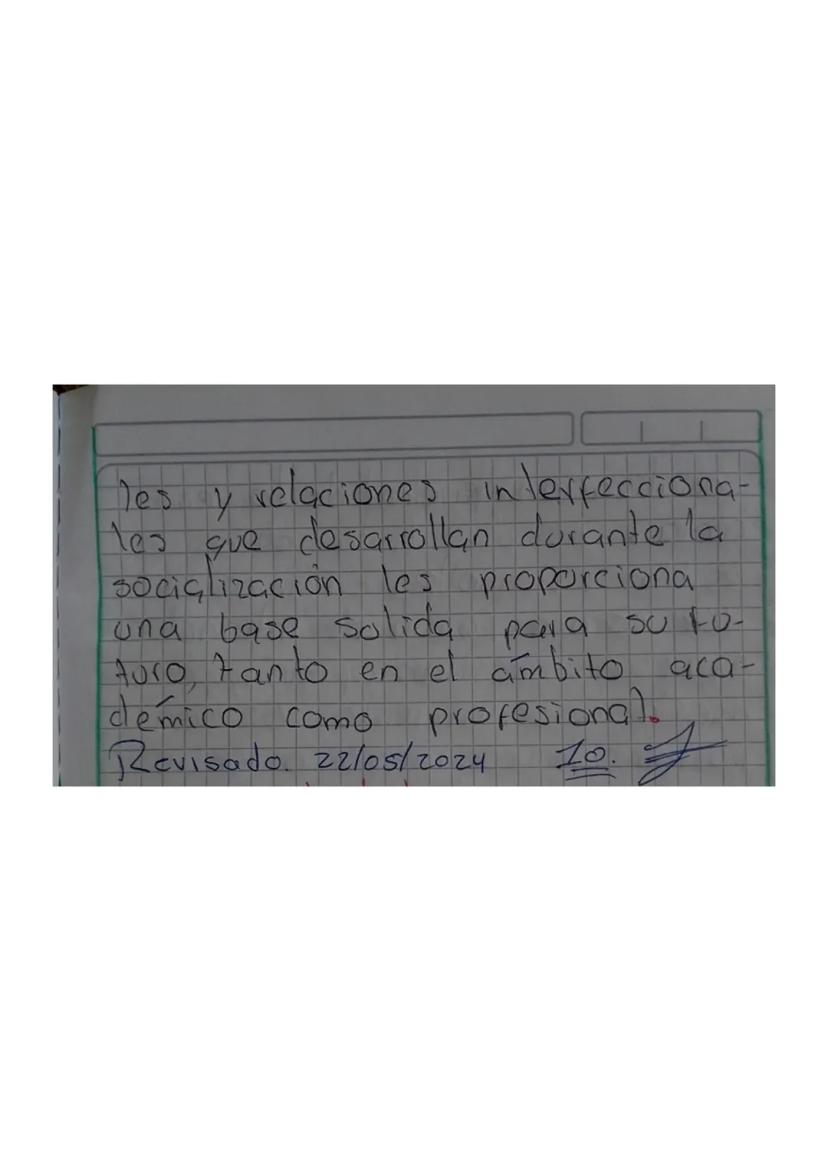 les y relaciones interfecciona-
les que desarrollan durante la
socialización les proporciona
una base solida para su fu-
turo, tanto en el ámbito aca-
démico como profesional.
Revisado. 22/05/2024 10.